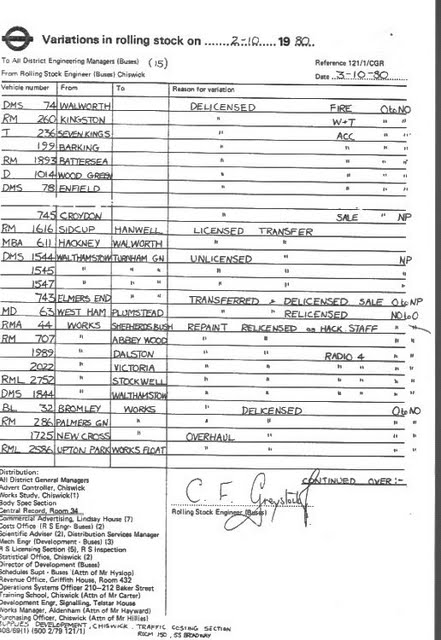 Variations in rolling stock on 2-10 1980.
To All District Engineering Managers (Buses) (15)
Reference 121/1/CGR
From Rolling Stock Engineer (Buses) Chiswick
Date 3-10-80
Vehicle number From To Reason for variation
DMS 74 WALWORTH DELICENSED FIRE O to NO
RM 260 KINGSTON " W+T " "
T 236 SEVEN KINGS " ACC " "
199 BARKING " " " "
RM 1893 BATTERSEA " " " "
D 1014 WOOD GREEN " " " "
DMS 78 ENFIELD " " " "
745 CROYDON " SALE " NP
RM 1616 SIDCUP HANWELL LICENSED TRANSFER
MBA 611 HACKNEY WALWORTH " "
DMS 1544 WALTHAMSTOW TURNHAM GN UNLICENSED " NP
1545 " " " " " "
1547 " " " " " "
743 ELMERS END TRANSFERRED & DELICENSED SALE O to NP
MD 63 WEST HAM PLUMSTEAD " RELICENSED NO to O
RMA 44 WORKS SHEPHERDS BUSH REPAINT RELICENSED on HACK STAFF " "
RM 707 " ABBEY WOOD " " "
1989 " DALSTON " " RADIO 4 "
2022 " VICTORIA " " " "
RML 2752 " STOCKWELL " " " "
DMS 1844 " WALTHAMSTOW " " " "
BL 32 BROMLEY WORKS " DELICENSED O to NO
RM 286 PALMERS GN " " " "
1725 NEW CROSS " OVERHAUL " "
RML 2586 UPTON PARK WORKS FLOAT " " "
CONTINUED OVER:-
C. F. Greystock
Rolling Stock Engineer (Buses)
Distribution:
All District General Managers
Advert Controller, Chiswick
Works Study, Chiswick (1)
Body Spec Section
Central Record, Room 34
Commercial Advertising, Lindsay House (7)
Costs Office (R S Engr Buses) (2)
Scientific Adviser (2), Distribution Services Manager
Mech Engr (Development - Buses) (3)
R S Licensing Section (5), R S Inspection
Statistical Office, Chiswick (2)
Director of Development (Buses)
Schedules Supt - Buses (Attn of Mr Hyslop)
Revenue Office, Griffith House, Room 432
Operations Systems Officer 210-212 Baker Street
Training School, Chiswick (Attn of Mr Carter)
Development Engr, Signalling, Telstar House
Works Manager, Aldenham (Attn of Mr Hayward)
Purchasing Officer, Chiswick (Attn of Mr Hillies)
SUPPLIES DEVELOPEMENT, CHISWICK. TRAFFIC COSING SECTION
608/69(1) (500 2/79 121/1) ROOM 150, 55 BROADWAY